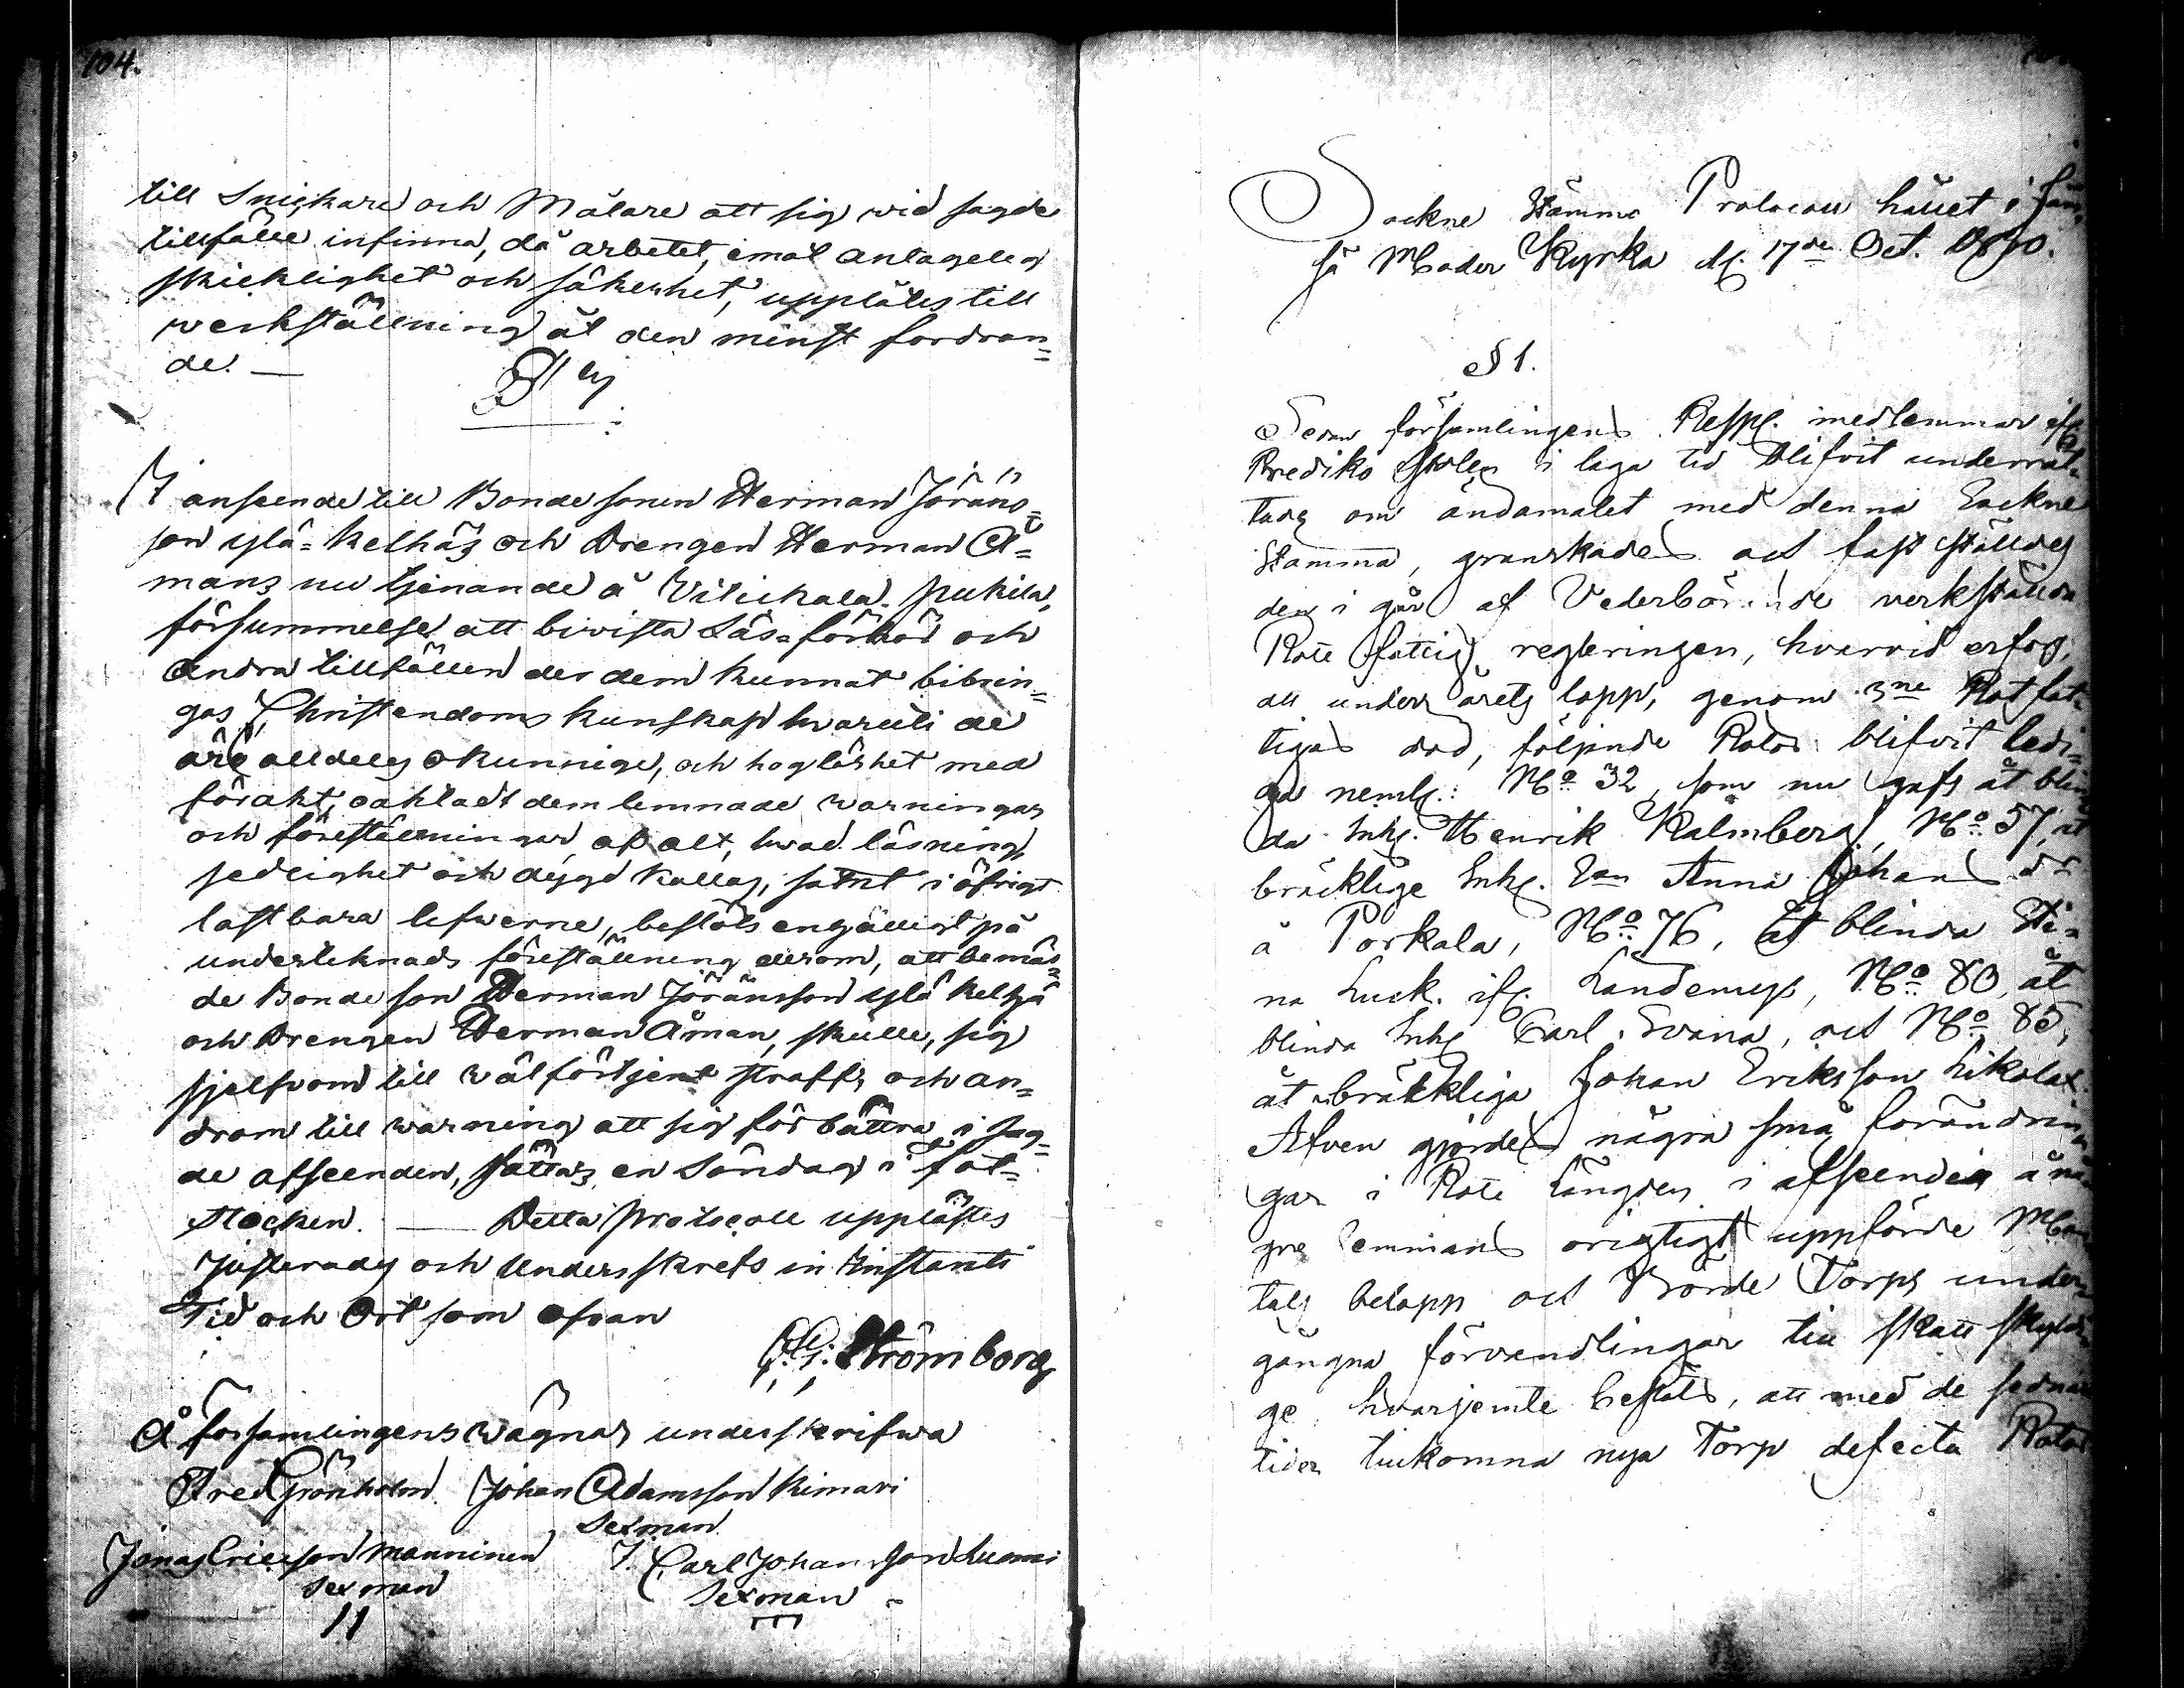 104.
till Snickare och Målare att sig wid sagde
tillfälle infinna, då arbetet, emot antagelig
skicklighet och säkerhet, upplåtes till
werkställning åt den minst fordran=
de. —
§
I anseende till Bonde sonen Herman Jörans=
son ylä=Kelhäs och Drengen Herman Å=
mans nu tjenande å Vilukala Pukila,
försummelse att biwista Läs=förhör och
andra tillfällen der dem kunnat bibrin=
gas Christendoms kunskap hwaruti de
äro alldeles okunnige, och hoglöshet med
förakt, oaktadt dem lemnade warningar
och föreställningar, af alt, hwad läsning,
sedlighet och dygd kallas, samt i öfrigt
lastbara lefwerne, beslöts enhälligt på
undertecknads föreställning derom, att bemäl=
de Bonde son Herman Jöransson ylä Kelhä
och Drengen Herman Åman, skulle, sig
sjelfvom till wälförtjent straff, och an=
drom till warning att sig förbättra i sag=
de afseenden, sättas en Söndag i fot=
stocken. — Detta Protocoll upplästes
justerades och underskrefs in Instanti
Tid och Ort som ofvan
Strömborg
Å församlingens wägnar underskrifwa
Fred Grönholm. Johan Adamsson Kimari
Sexman
Jonas Ericsson Manninen J. Carl Johansson Luomi
Sexman Sexman
Sockne Stämmo Protocoll hållet i Jäm=
sä Moder Kyrka d. 17de Oct. 1830.
§ 1.
Sedan församlingens Resp. medlemmar ifr.
Prediko Stolen i laga tid blifvit underrät=
tade om ändamålet med denna Sockne
Stämma, granskades och fast ställdes
den i går af Vederbörande verkställda
Rote fattig regleringen, hvarvid erfors,
att under årets lopp, genom 3ne Rotfat=
tigas död, följande Rotor blifvit ledi=
ga neml.: No 32, som nu gafs åt blin
da Inh. Henrik Kalmberg, No 57, åt
bräcklige Inh. Anna Johans dr
å Porkala, No 76, åt blinda Sti=
na Luck. ifr. No 80, åt
blinda Inh. Carl Svana, och No 85,
åt bräckliga Johan Eriksson Likola.
Äfven gjordes några små förändrin
gar i Rote Längden i afseende å nå
gre hemmans origtigt uppförde Man
tals belopp och Bonde Torps under
gångna förvandlingar till skatt skyldi
ge, hvarjemte beslöts, att med de sednare
tider tillkomna nya Torp defecta Rotor